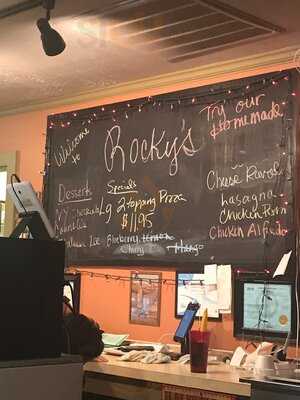 Welcome
to
Rocky's
Try our
Homemade
Desserts
NY Cheesecake
Specials
Lg 2 topping Pizza
$11.95
Cheese Ravioli
Lasagna
Chicken Parm
Chicken Alfredo
Italian Ice
Blueberry
Lemon
Cherry
Mango